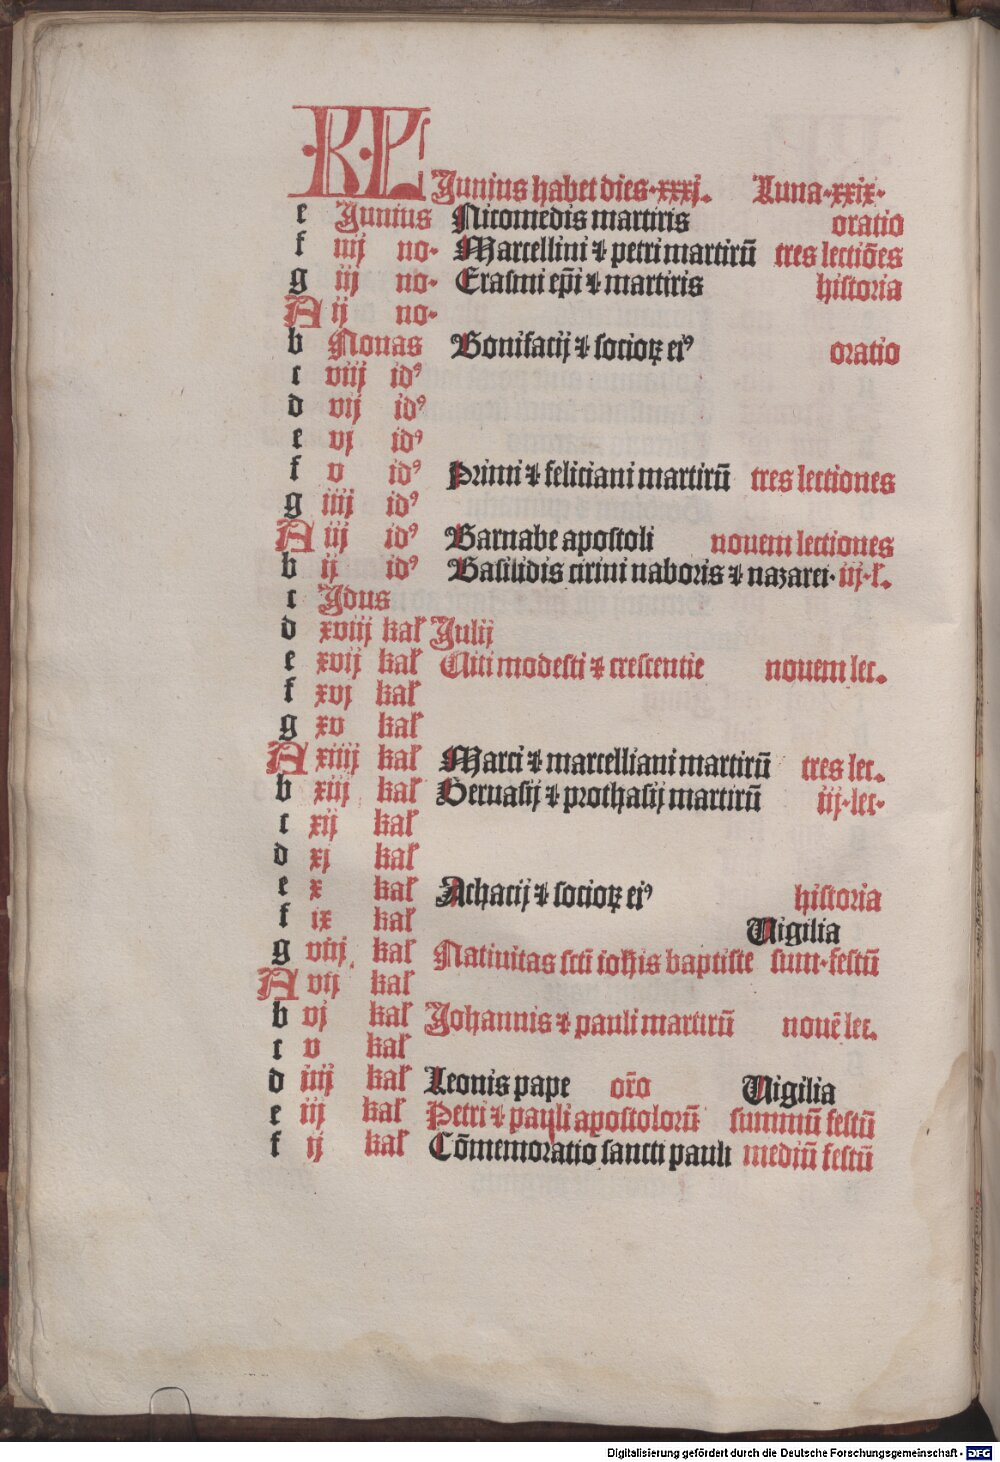 KL Junius habet dies·xxxj. Luna·xxix·
e Junius Nicomedis martiris oratio
f iiij no· Marcellini ⁊ petri martirū tres lectiōes
g iij no· Erasmi ep̄i ⁊ martiris historia
A ij no·
b Nonas Bonifacij ⁊ socioꝝ eiꝰ oratio
c viij idꝰ
d vij idꝰ
e vj idꝰ
f v idꝰ Primi ⁊ feliciani martirū tres lectiones
g iiij idꝰ
A iij idꝰ Barnabe apostoli nouem lectiones
b ij idꝰ Basilidis cirini naboris ⁊ nazarei· iij·l'.
c Jdus
d xviij kal' Julij
e xvij kal' Uiti modesti ⁊ crescentie nouem lec.
f xvj kal'
g xv kal'
A xiiij kal' Marci ⁊ marcelliani martirū tres lec.
b xiij kal' Geruasij ⁊ prothasij martirū iij·lec·
c xij kal'
d xj kal'
e x kal' Achacij ⁊ socioꝝ eiꝰ historia
f ix kal' Uigilia
g viij kal' Natiuitas scti ioh̄is baptiste sum·festū
A vij kal'
b vj kal' Johannis ⁊ pauli martirū nouē lec.
c v kal'
d iiij kal' Leonis pape or̄o Uigilia
e iij kal' Petri ⁊ pauli apostolorū summū festū
f ij kal' Cōmemoratio sancti pauli mediū festū
Digitalisierung gefördert durch die Deutsche Forschungsgemeinschaft - DFG